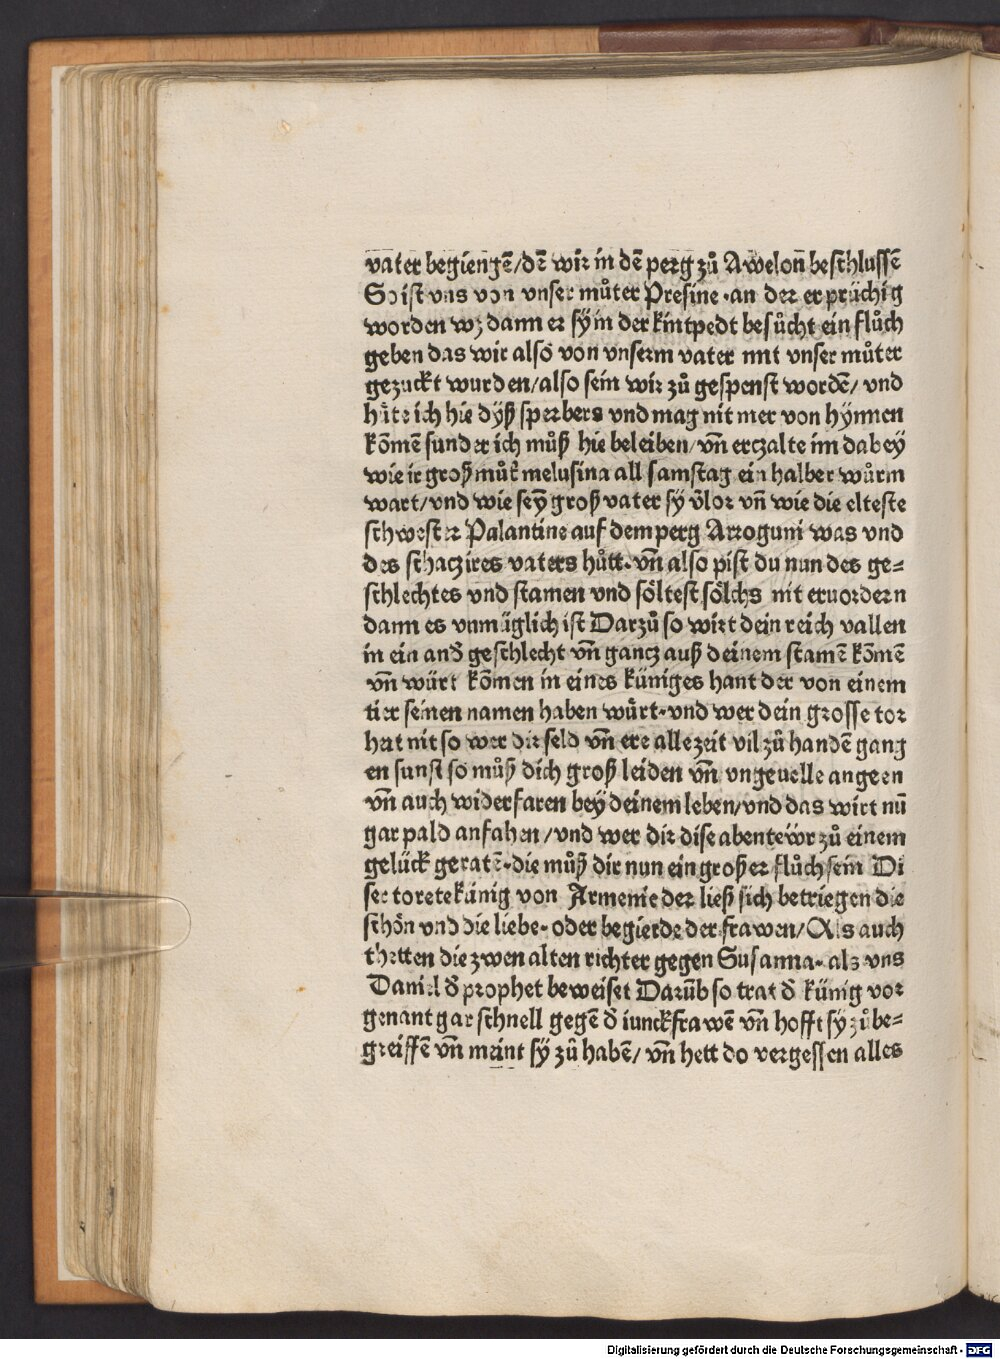 vater begiengē/dē wir in dē perg zů Awelon̄ beschlussē
So ist vns von vnser můter Presine ·an der er prüchig
worden wz dann er sy in der kintpedt besůcht ein flůch
geben das wir also von vnserm vater mit vnser můter
gezuckt wurden/also sein wir zů gespenst wordē/ vnd
hůte ich hie dyß sperbers vnd mag nit mer von hynnen
kōmē sunder ich můß hie beleiben/vn̄ erczalte im dabey
wie ir groß můt̄ melusina all samstag ein halber wůrm
wart/vnd wie seȳ groß vater sy v̄lor vn̄ wie die elteste
schwester Palantine auf dem perg Arroguni was vnd
des schacz ires vaters hůtt·vn̄ also pist du nun des ge=
schlechtes vnd stamen vnd söltest sölchs nit eruordern
dann es vnmüglich ist Darzů so wirt dein reich vallen
in ein and̄ geschlecht vn̄ gancz auß deinem stamē kōmē
vn̄ würt kōmen in eines küniges hant der von einem
tier seinen namen haben würt·vnd wer dein grosse tor
heit nit so wer dir seld vn̄ ere allezeit vil zů handē gang
en sunst so můß dich groß leiden vn̄ vngeuelle angeen
vn̄ auch widerfaren bey deinem leben/vnd das wirt nū
gar pald anfahen/vnd wer dir dise abenteẅr zů einem
gelück geratē·die můß dir nun ein großer flůch sein Di
ser torete künig von Armenie der ließ sich betriegen die
schön vnd die liebe·oder begierde der frawen/Als auch
thetten die zwen alten richter gegen Susanna·als vns
Daniel d̄ prophet beweiset Darūb so trat d̄ künig vor
genant gar schnell gegē d̄ iunckfrawē vn̄ hofft sy zů be=
greiffē vn̄ meint sy zů habē/ vn̄ hett do vergessen alles
Digitalisierung gefördert durch die Deutsche Forschungsgemeinschaft - DFG